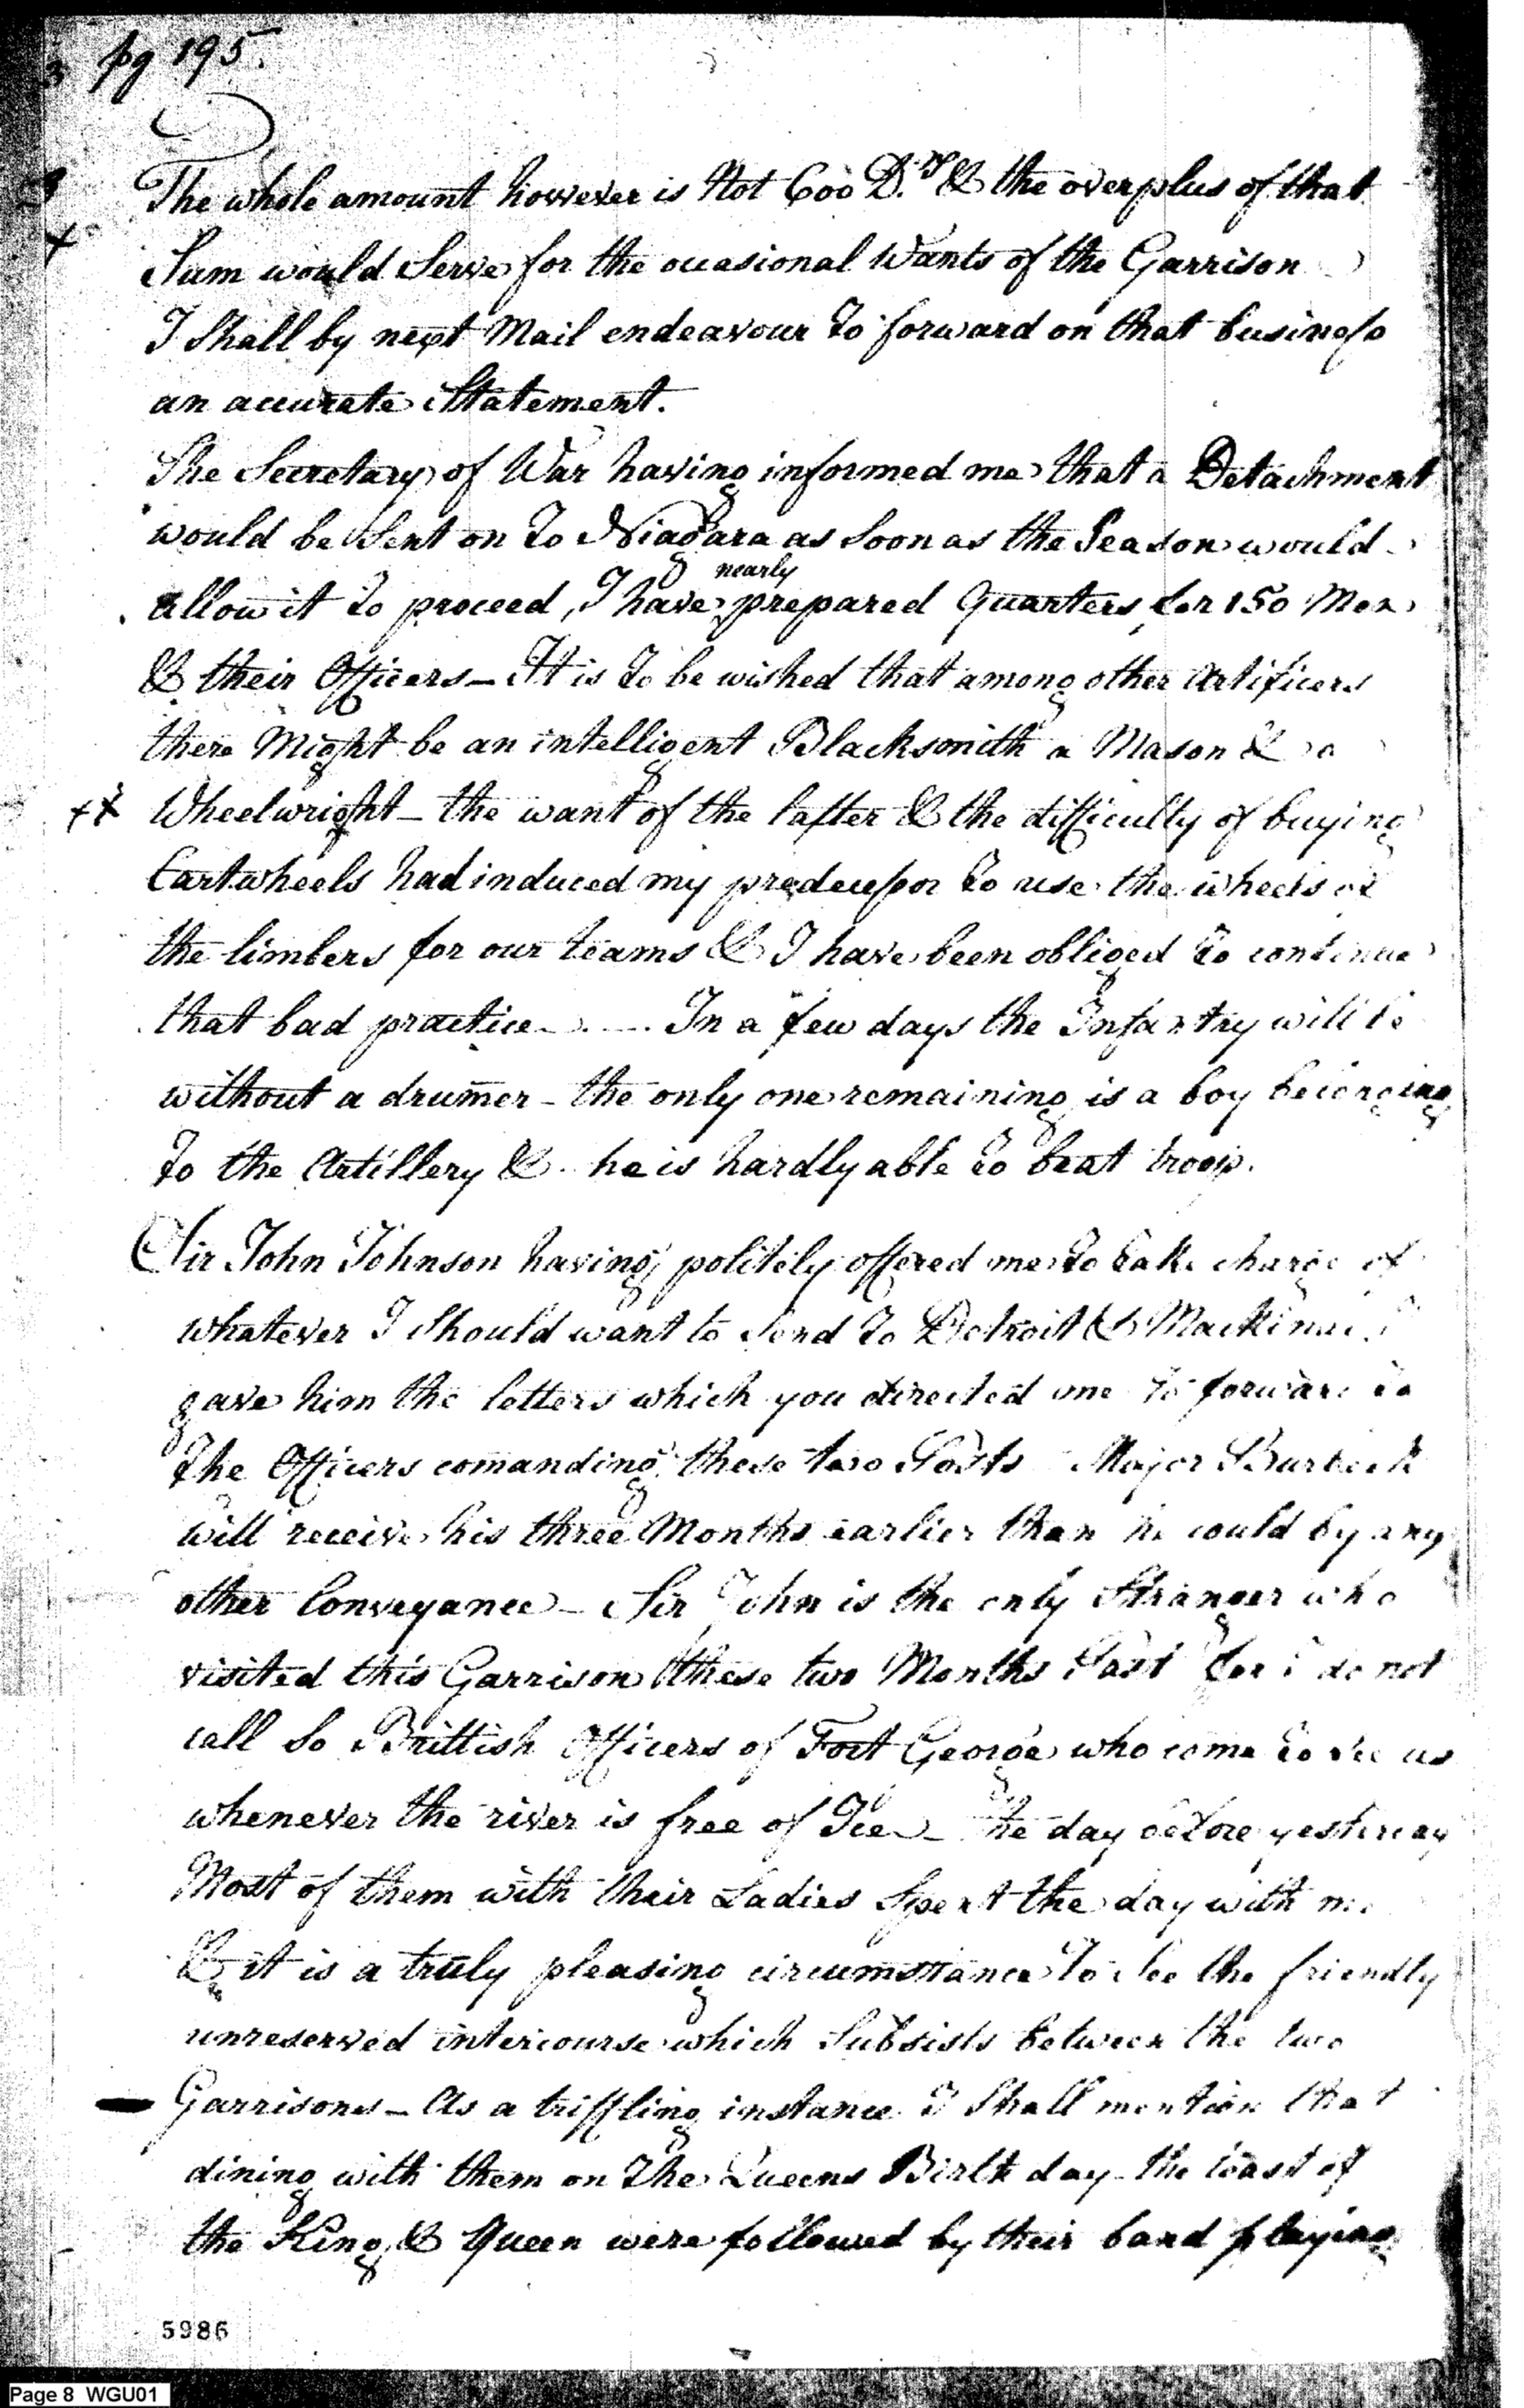 pg 195.
The whole amount however is Not 600 D.rs & the overplus of that
Sum would Serve for the occasional Wants of the Garrison
I Shall by next Mail endeavour to forward on that business
an accurate Statement.
The Secretary of War having informed me that a Detachment
would be Sent on to Niagara as Soon as the Season would
nearly
allow it to proceed, I have prepared Quarters for 150 Men
& their Officers _ It is to be wished that among other Artificers
there Might be an intelligent Blacksmith a Mason & a
++ Wheelwright _ the want of the latter & the difficulty of buying
Cartwheels had induced my predecessor to use the wheels of
the limbers for our teams & I have been obliged to continue
that bad practice _ . _ . In a few days the Infantry will be
without a drumer _ the only one remaining is a boy belonging
to the Artillery & he is hardly able to beat troop.
Sir John Johnson having politely offered me to take charge of
whatever I Should want to Send to Detroit &
gave him the letters which you directed me to forward to
the Officers comanding these two Posts Major Burbeck
will receive his three Months earlier than he could by any
other Conveyance _ Sir John is the only Stranger who
visited this Garrison these two Months Past for I do not
call So Brittish Officers of Fort George who come to See us
whenever the river is free of Ice _ The day before yesterday
Most of them with their Ladies Spent the day with me
& it is a truly pleasing circumstance to See the friendly
unreserved intercourse which Subsists between the two
Garrisons _ As a triffling instance I Shall mention that
dining with them on the Queens Birth day the toast of
the King & Queen were followed by their band playing
5986
Page 8 WGU01